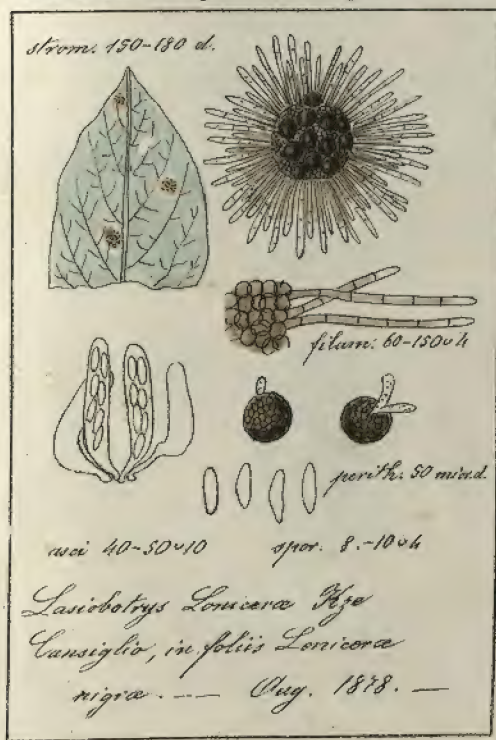 strom. 150-180 d.
filam: 60-150 ν 4
perith: 50 mic.d.
asci 40-50 ν 10
spor. 8.-10 ν 4
Lasiobotrys Loniceræ Kze
Cansiglio, in foliis Loniceræ
nigræ. --- Aug. 1878. —